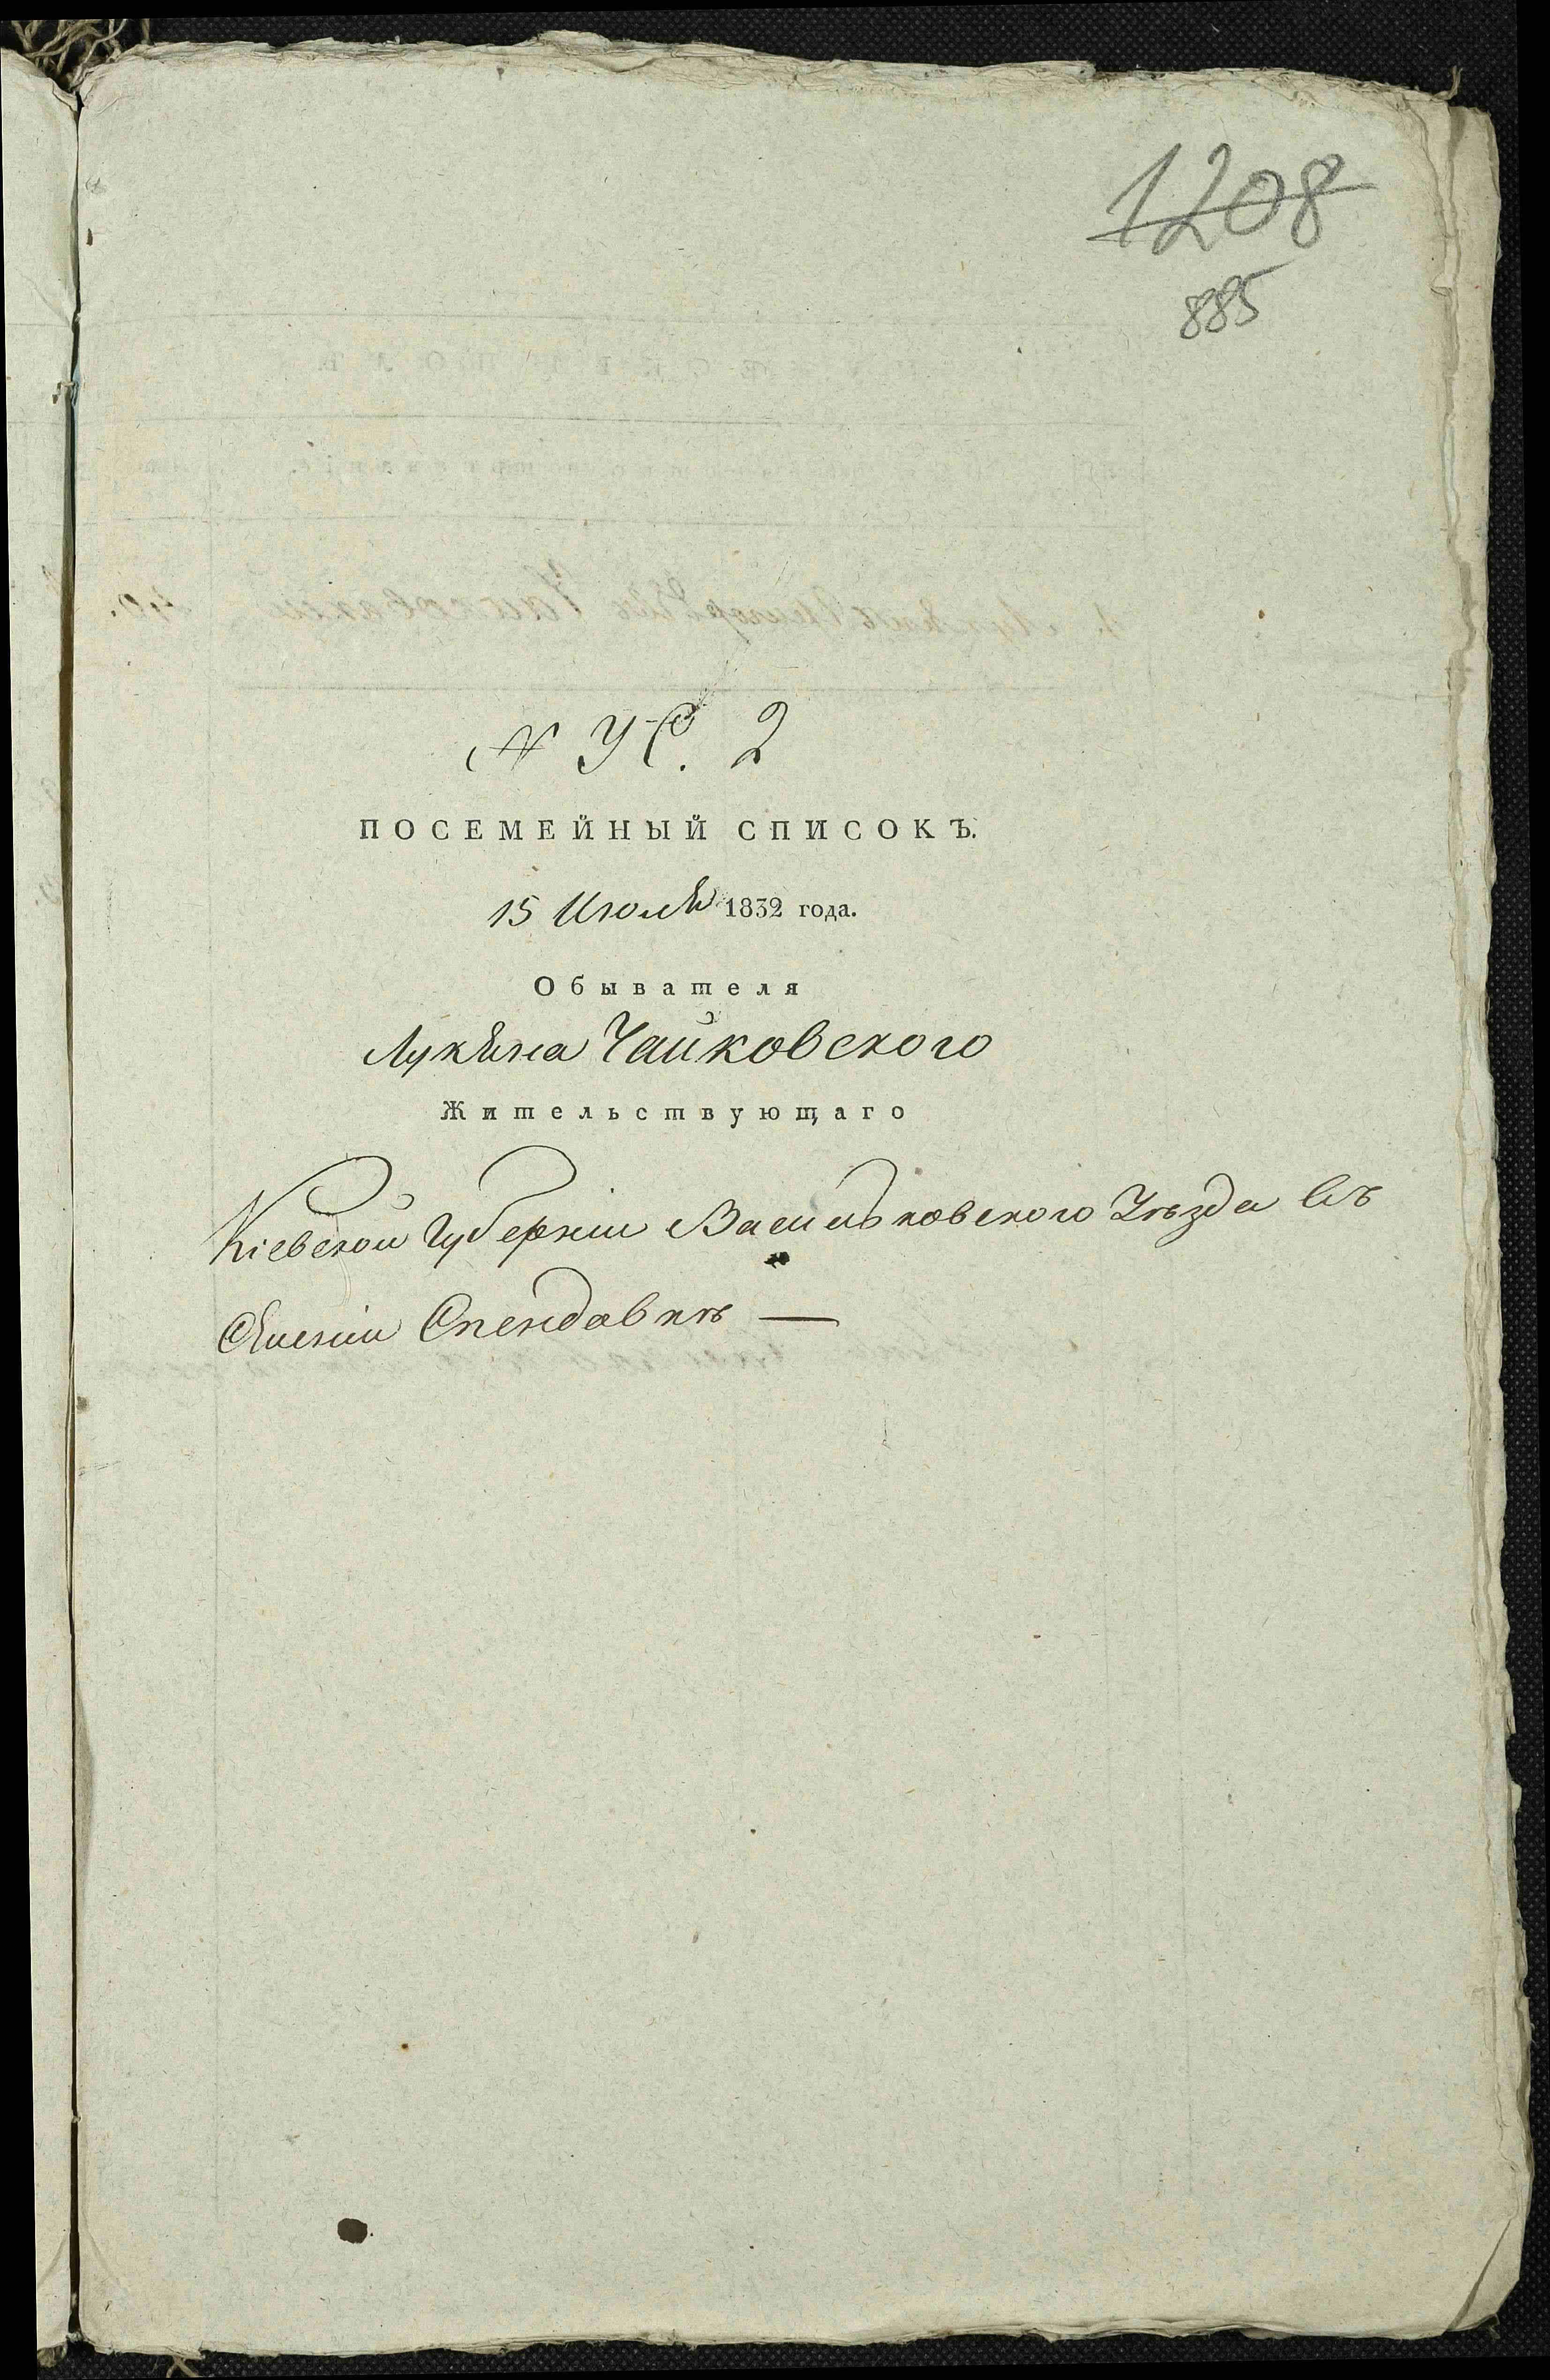 1208
885
N УС. 2
ПОСЕМЕЙНЫЙ СПИСОКЪ.
15 Июля 1832 года.
Обывателя
Лукяна Чайковского
Жительствующаго
Кіевской Губерніи Васильковского Уѣзда Въ